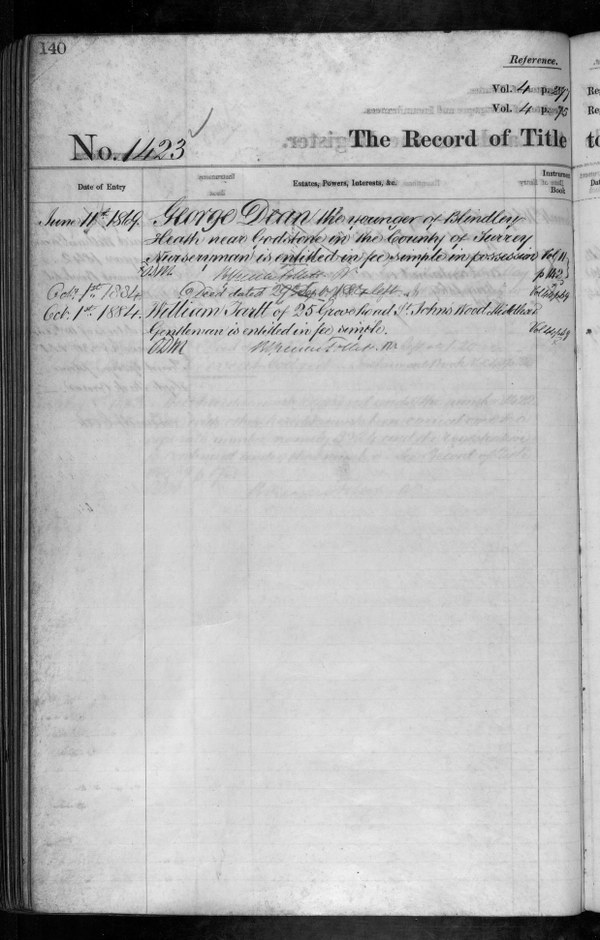 140
Reference.
Vol. 4 p. 277
Vol. 4 p. 75
No. 1423
The Record of Title
Date of Entry
Estates, Powers, Interests, &c.
Instrument
Book
June 1869
George Dean the younger of Blindley
Heath near Godstone in the County of Surrey
Nurseryman is entitled in fee simple in possession
Vol
Oct. 1st. 1884
Deed dated 29th Sept 1884 left
Oct. 1st. 1884
William Tautt of 25 Grove Road St. Johns Wood Middlesex
Gentleman is entitled in fee simple.